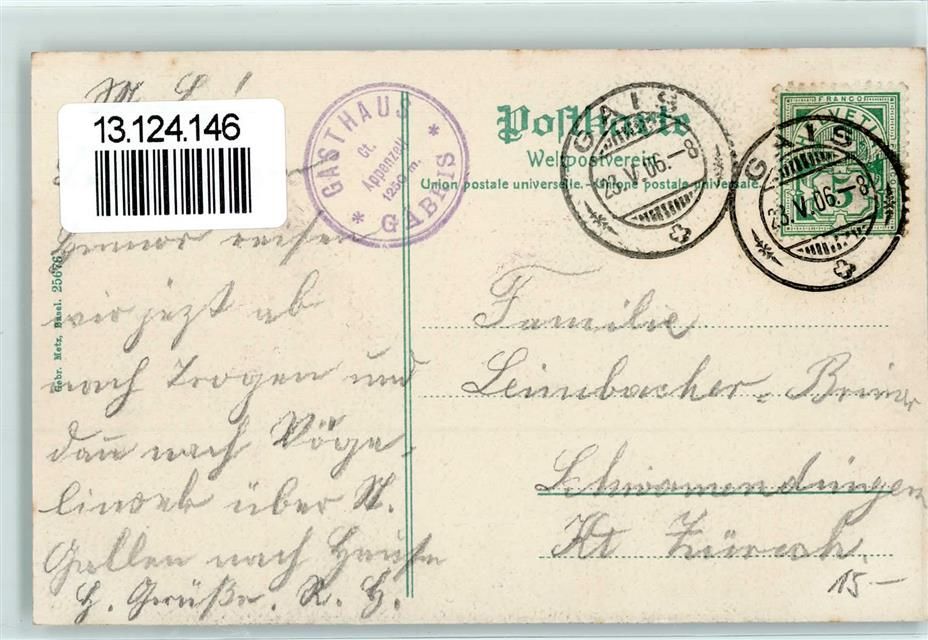 M. L!
13.124.146
GASTHAUS
Ct.
Appenzell
1250 m.
* GÄBRIS *
Postkarte
Weltpostverein
Union postale universelle. - Unione postale universale.
GAIS
23.V.06.-8
FRANCO
HELVETIA
5
GAIS
23.V.06.-8
Gebr. Metz, Basel. 25676
reisen
wir jezt ab
nach Trogen und
dañ nach Vöge-
linsek über St.
Gallen nach Hause
H. Grüße. R. H.
Familie
Leimbacher-Briner
Schwamendingen
Kt Zürich.
15.-